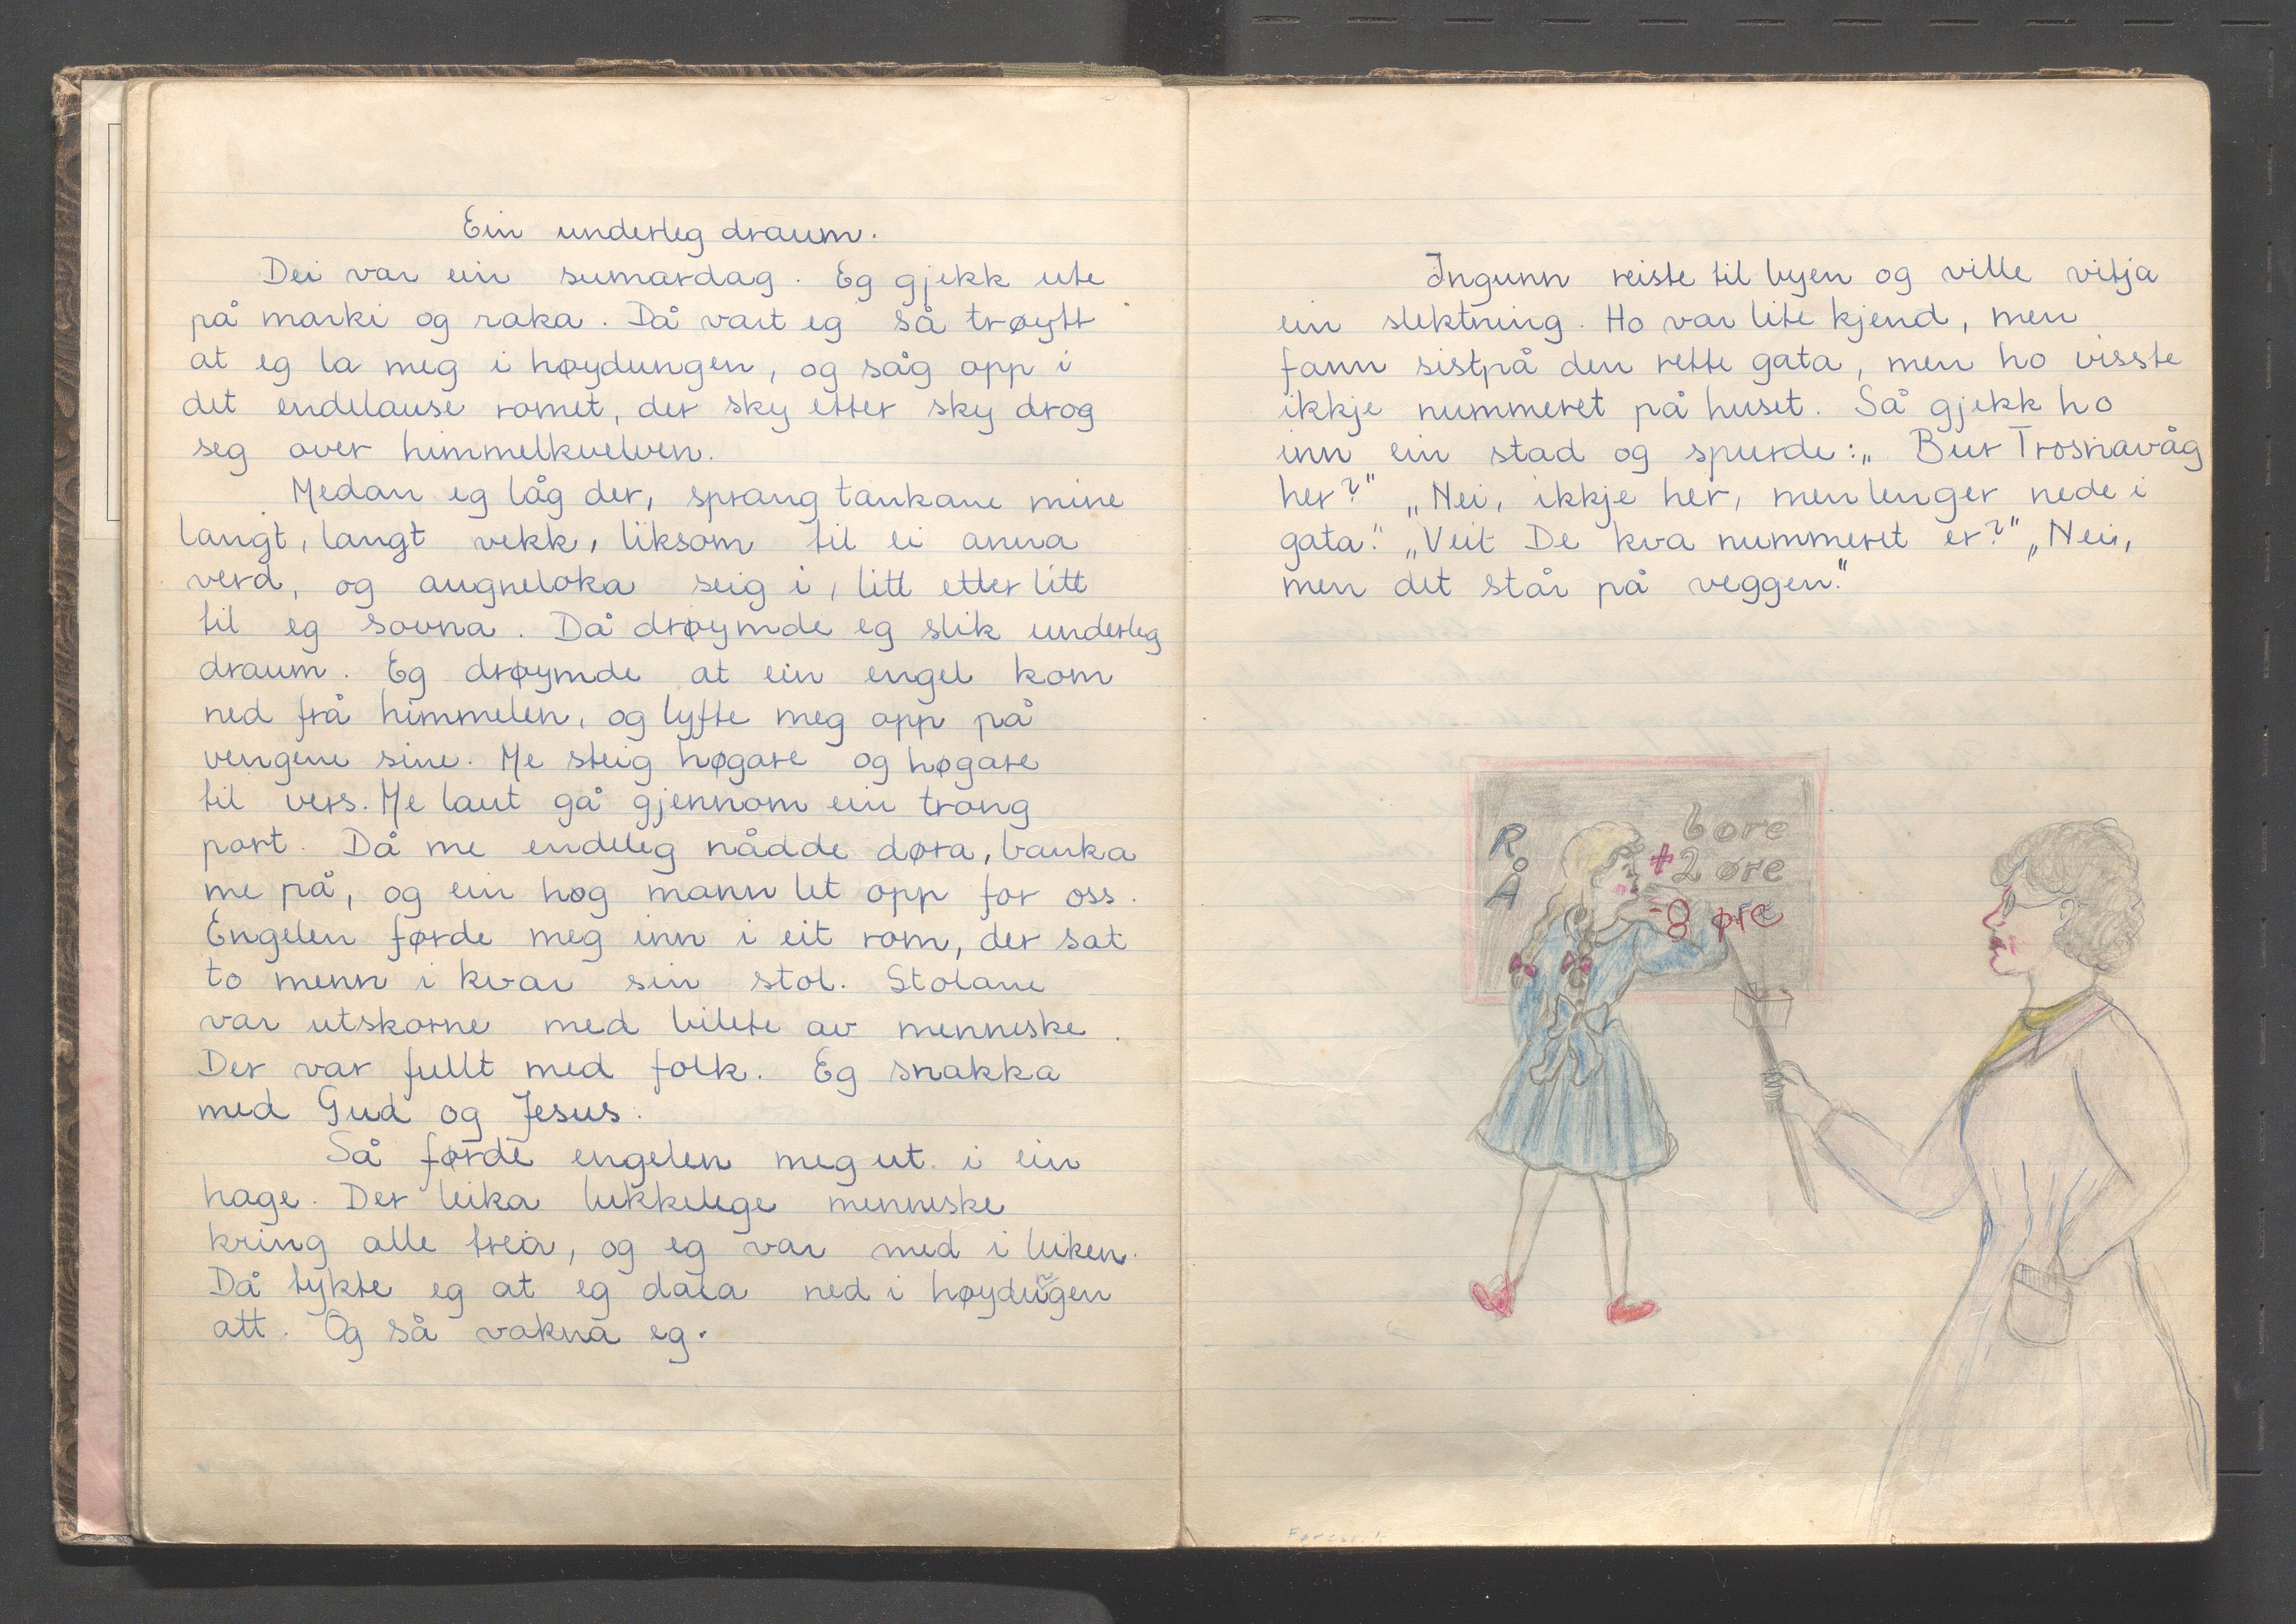 Ein underleg draum.
Dei var ein sumardag. Eg gjekk ute
på marki og raka. Då vart eg så trøytt
at eg la meg i høydungen, og såg opp i
det endelause romet, der sky etter sky drog
seg over himmelkvelven.
Medan eg låg der, sprang tankane mine
langt, langt vekk, liksom til ei anna
verd, og augneloka seig i, litt etter litt
til eg sovna. Då drøymde eg slik underleg
draum. Eg drøymde at ein engel kom
ned frå himmelen, og lyfte meg opp på
vengene sine. Me steig høgare og høgare
til vers. Me laut gå gjennom ein trong
port. Då me endeleg nådde døra, banka
me på, og ein høg mann let opp for oss.
Engelen førde meg inn i eit rom, der sat
to menn i kvar sin stol. Stolane
var utskorne med bilete av menneske.
Der var fullt med folk. Eg snakka
med Gud og Jesus.
Så førde engelen meg ut i ein
hage. Der leika lukkelege menneske
kring alle trea, og eg var med i leiken.
Då tykte eg at eg data ned i høydungen
att. Og så vakna eg.
Ingunn reiste til byen og ville vitja
ein slektning. Ho var lite kjend, men
fann sistpå den rette gata, men ho visste
ikkje nummeret på huset. Så gjekk ho
inn ein stad og spurde: „Bur Trosnavåg
her?" „Nei, ikkje her, men lenger nede i
gata." „Veit De kva nummeret er?" „Nei,
men det står på veggen."
R
Å
6 øre
+2 øre
-8 øre